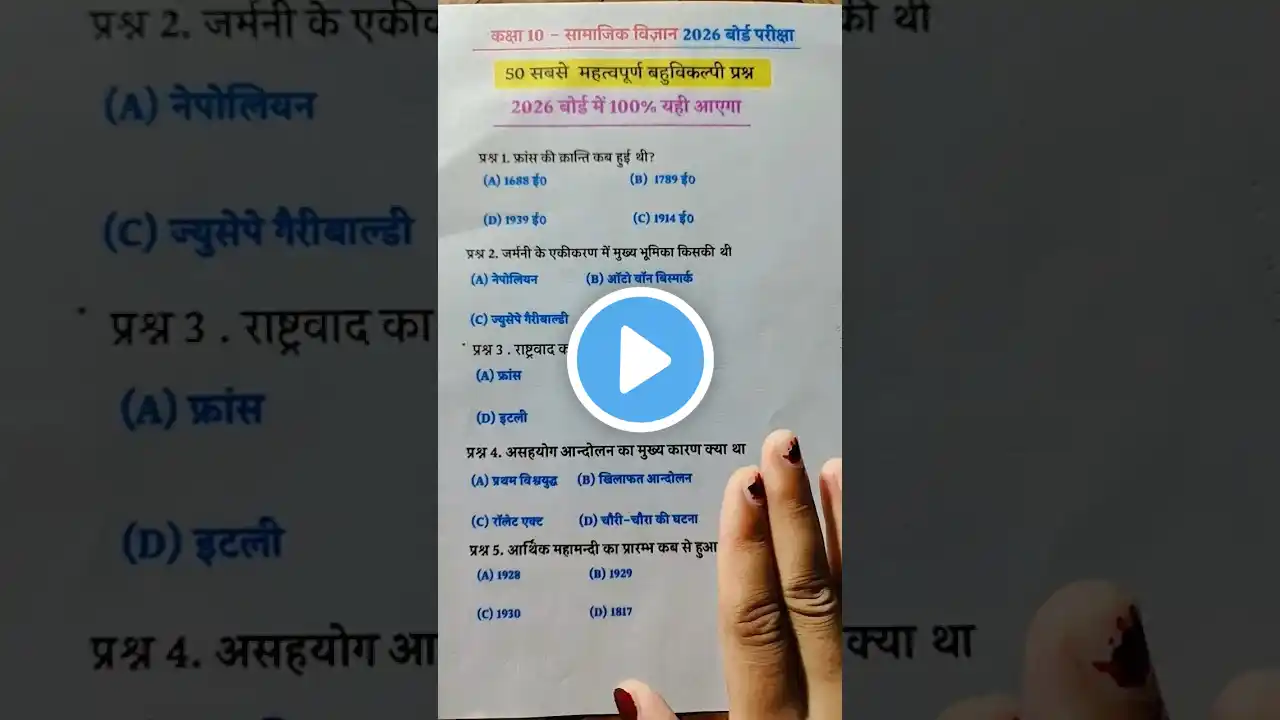 कक्षा 10 - सामाजिक विज्ञान 2026 बोर्ड परीक्षा
50 सबसे महत्वपूर्ण बहुविकल्पी प्रश्न
2026 बोर्ड में 100% यही आएगा
प्रश्न 1. फ्रांस की क्रान्ति कब हुई थी?
(A) 1688 ई० (B) 1789 ई०
(D) 1939 ई० (C) 1914 ई०
प्रश्न 2. जर्मनी के एकीकरण में मुख्य भूमिका किसकी थी
(A) नेपोलियन (B) ऑटो वॉन बिस्मार्क
(C) ज्युसेपे गैरीबाल्डी
प्रश्न 3 . राष्ट्रवाद
(A) फ्रांस
(D) इटली
प्रश्न 4. असहयोग आन्दोलन का मुख्य कारण क्या था
(A) प्रथम विश्वयुद्ध (B) खिलाफत आन्दोलन
(C) रॉलेट एक्ट (D) चौरी-चौरा की घटना
प्रश्न 5. आर्थिक महामन्दी का प्रारम्भ कब से हुआ
(A) 1928 (B) 1929
(C) 1930 (D) 1817